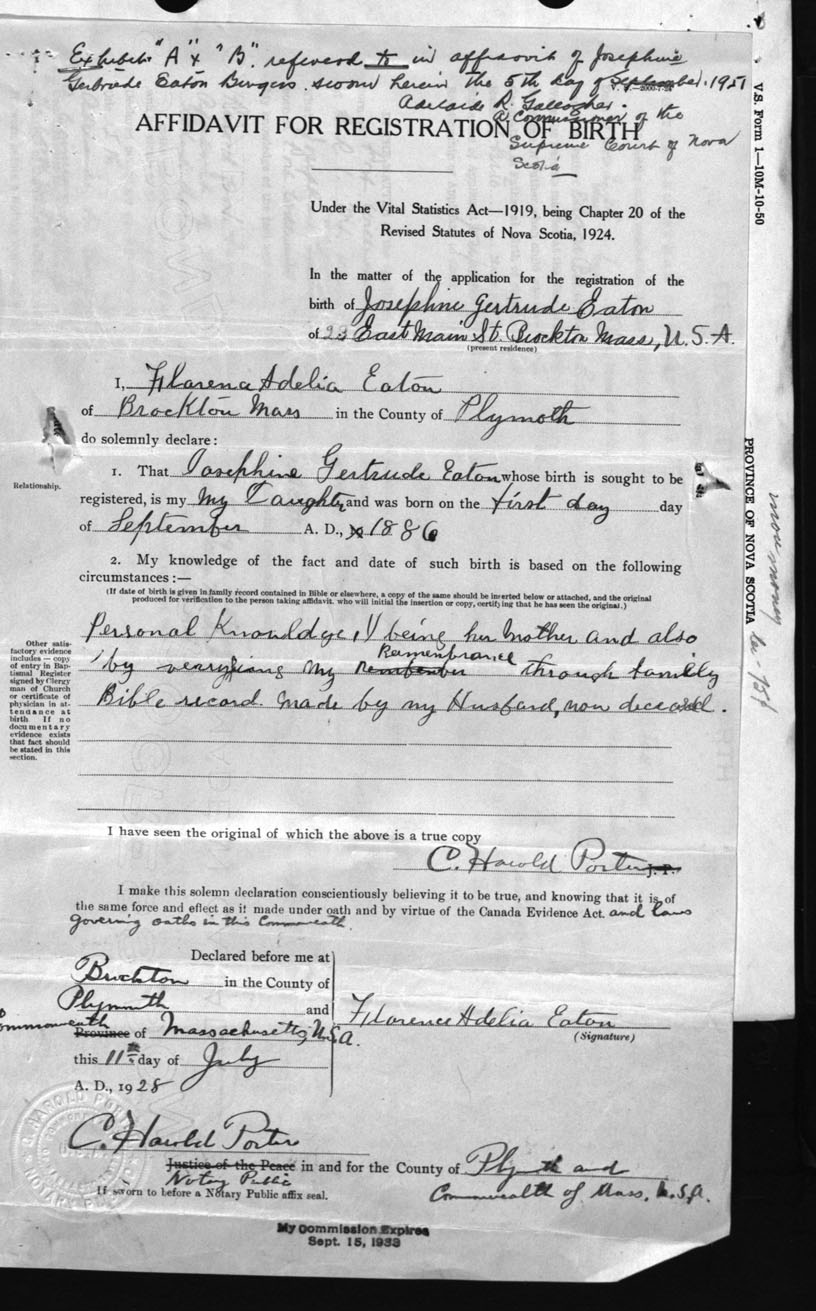 Exhibits "A" & "B" refereed to in affidavit of Josephine
Gertrude Eaton Burgess sworn herein the 5th day of September, 1951
Adelaide R. Gallagher.
A Commissioner of the
Supreme Court of Nova
Scotia
AFFIDAVIT FOR REGISTRATION OF BIRTH
Under the Vital Statistics Act—1919, being Chapter 20 of the
Revised Statutes of Nova Scotia, 1924.
In the matter of the application for the registration of the
birth of Josephine Gertrude Eaton
of 23 East Main St. Brockton Mass, U.S.A.
(present residence)
I, Florena Adelia Eaton
of Brockton Mass in the County of Plymoth
do solemnly declare:
Relationship.
1. That Josephine Gertrude Eaton whose birth is sought to be
registered, is my My Daughter and was born on the first day day
of September A. D., 1886
2. My knowledge of the fact and date of such birth is based on the following
circumstances:—
(If date of birth is given in family record contained in Bible or elsewhere, a copy of the same should be inserted below or attached, and the original
produced for verification to the person taking affidavit. who will initial the insertion or copy, certifying that he has seen the original.)
Other satis-
factory evidence
includes — copy
of entry in Bap-
tismal Register
signed by Clergy
man of Church
or certificate of
physician in at-
tendance at
birth. If no
documentary
evidence exists
that fact should
be stated in this
section.
Personal Knowldge, I being her Mother and also
by my Remembrance through family
Bible record made by my Husband, now deceased.
I have seen the original of which the above is a true copy
C. Harold Porter J. P.
I make this solemn declaration conscientiously believing it to be true, and knowing that it is of
the same force and effect as it made under oath and by virtue of the Canada Evidence Act. and laws
governing oaths in this Commweath.
Declared before me at
Brockton in the County of
Plymouth and
Commonweath
Province of Massachusetts, U.S.A.
this 11th day of July
A. D., 1928
Florence Adelia Eaton
(Signature)
C. Harold Porter
Justice of the Peace in and for the County of Plymouth and
Notary Public
If sworn to before a Notary Public affix seal.
Commonwealth of Mass. U.S.A.
My Commission Expires
Sept. 15, 1933
V.S. Form 1—10M-10-50
PROVINCE OF NOVA SCOTIA